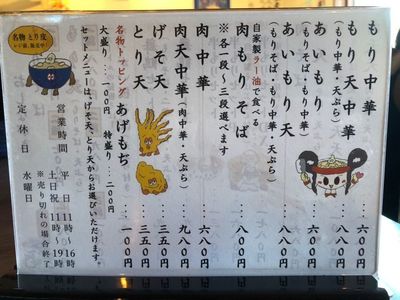 もり中華・・・六〇〇円
もり天中華・・・八八〇円
（もり中華・天ぷら）
あいもり・・・六〇〇円
（もりそば・もり中華）
あいもり天・・・八八〇円
（もりそば・もり中華・天ぷら）
自家製ラー油で食べる
肉もりそば・・・八〇〇円
※各一段、三段選べます
肉中華・・・六八〇円
肉天中華・・・九八〇円
（肉中華・天ぷら）
げそ天・・・三五〇円
とり天・・・三五〇円
名物トッピング あげもぢ・・・一〇〇円
大盛り・・・一〇〇円 特盛り・・・二〇〇円
セットメニューは、げそ天、とり天からお選びいただけます。
名物 とり皮
レジ前、販売中！
営業時間 平日 11時〜16時
土日祝 11時〜19時
※売り切れの場合終了
定休日 水曜日